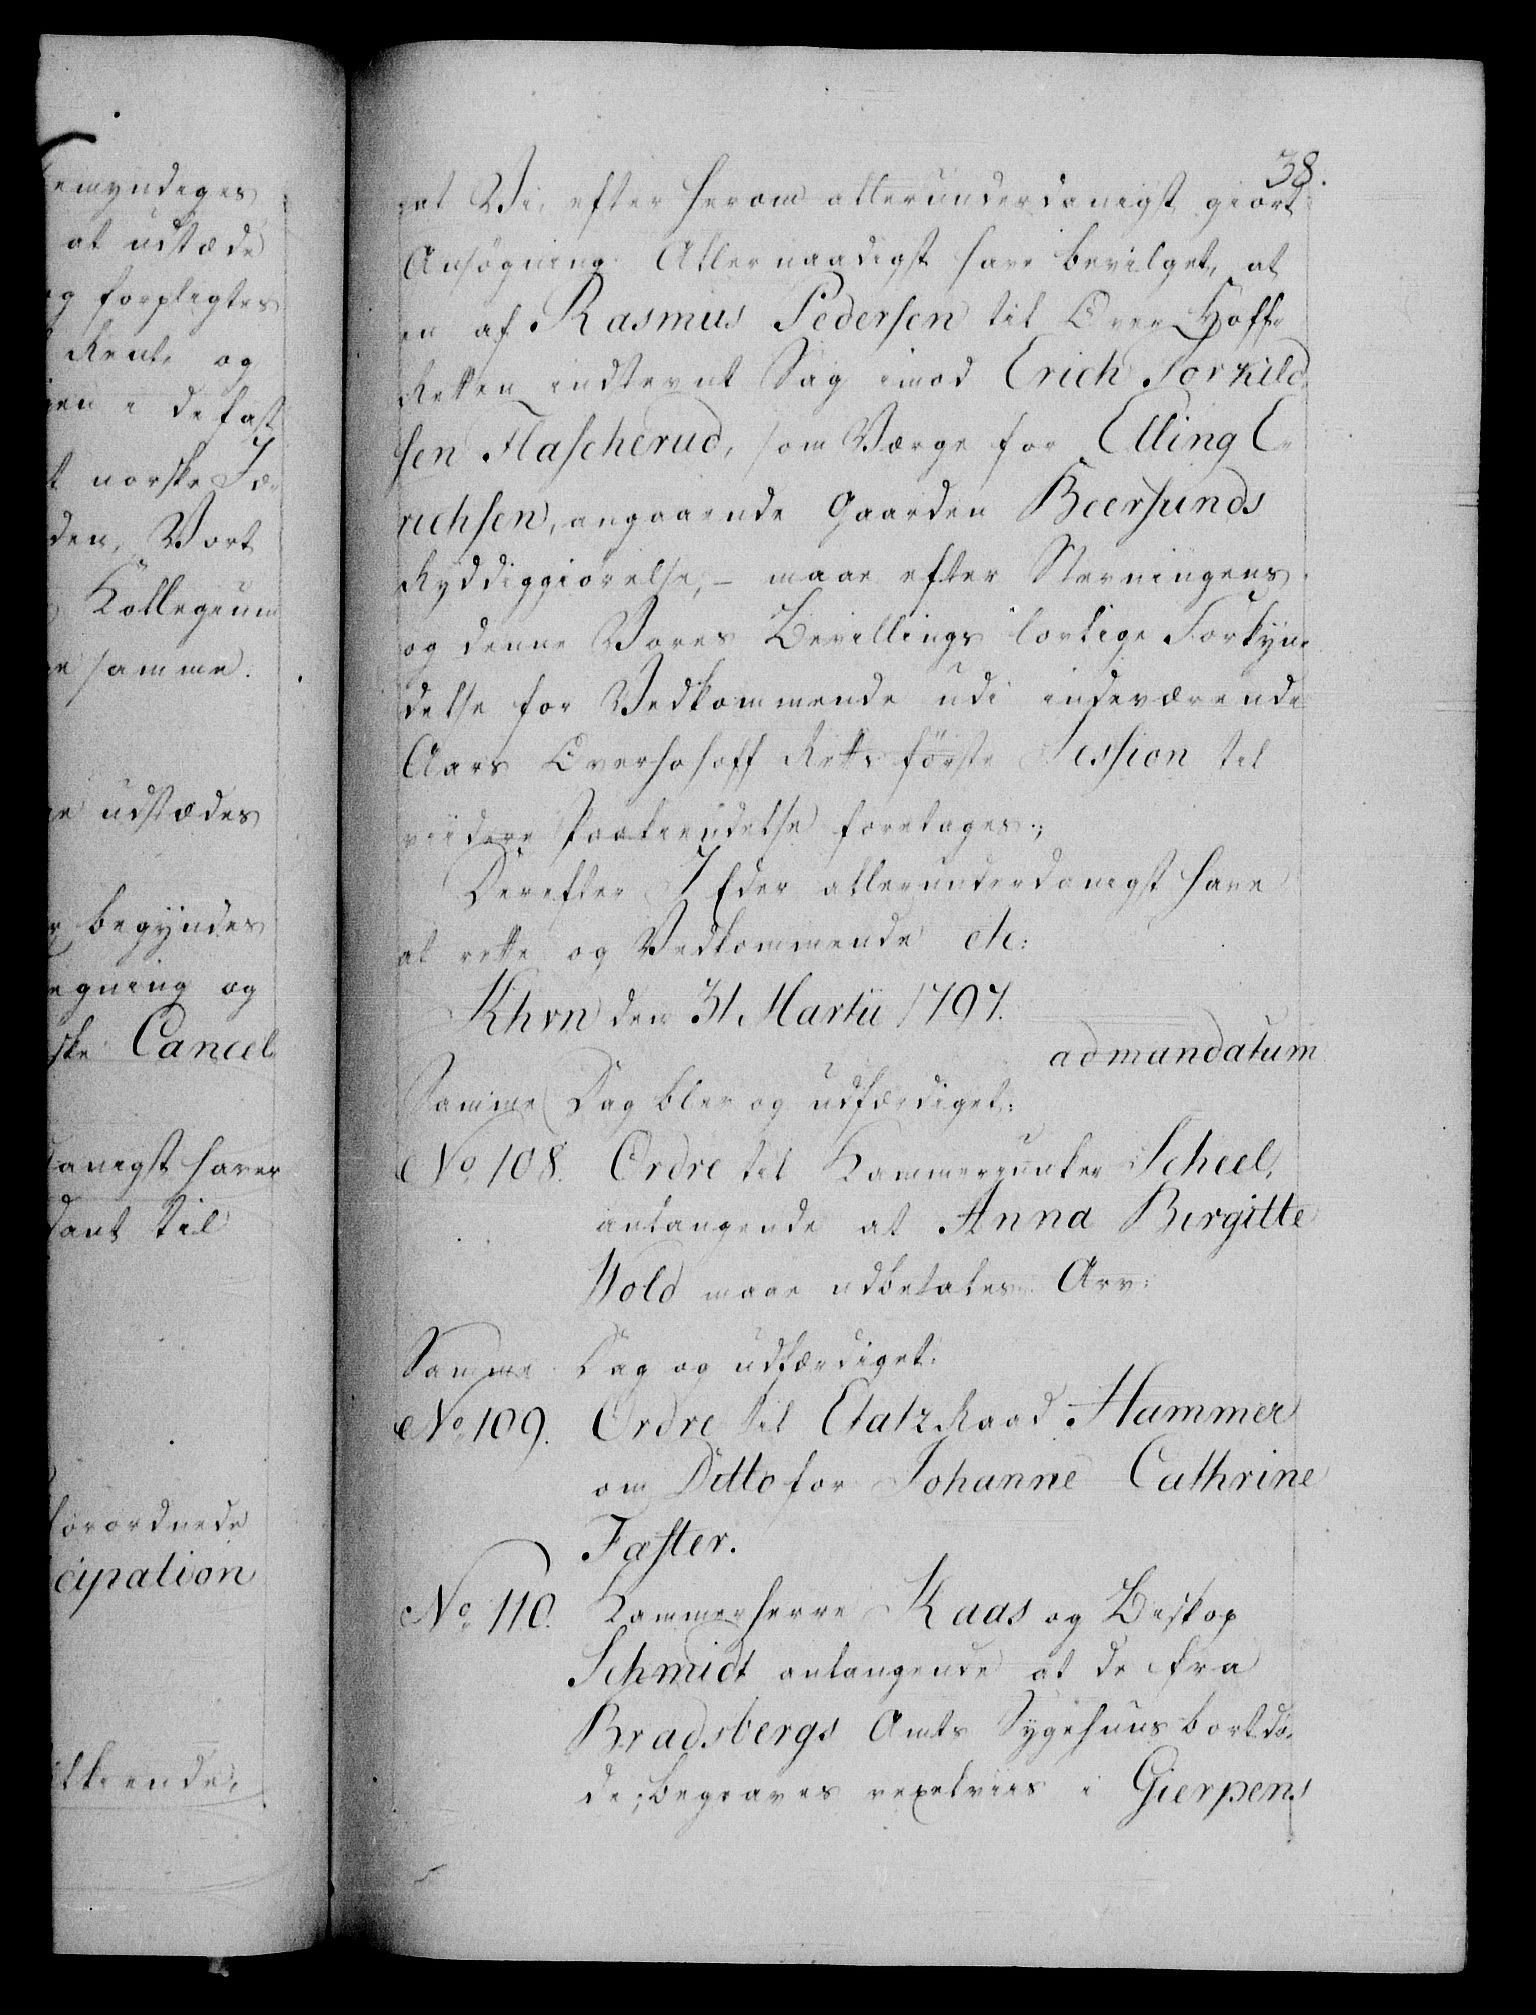 emyndiges
at udstæde
og forpligtes
Rente og
en i de fast
t norske Tæ-
den, Vort
Kollegium
e samme.
e udstædes
r begyndes
egning og
ske Cancel-
danigst haver
dant til
forordnede
cipation
Ettkiende,
38.
at Vi, efter herom allerunderdanigst giort
Ansøgning Allernaadigst have bevilget, at
en af Rasmus Pedersen til Over Hoff-
Retten indstevnt Sag imod Erich Torkild-
sen Flascherud, som Værge for Elling E-
richsen, angaaende Gaarden Beersunds
Ryddiggiørelse, – maae efter Stevningens
og denne Vores Bevillings lovlige Forkyn-
delse for Vedkommende udi indeværende
Aars Overhofhoff Retts første Session til
viidere Paakiendelse foretages;
Derefter I Eder allerunderdanigst have
at rette og Vedkommende etc:
Khvn den 31 Martii 1797.
ad mandatum
Samme Dag blev og udfærdiget:
No 108. Ordre til Kammerjunker Scheel,
anlangende at Anna Birgitte
Wold maae udbetales Arv:
Samme Dag og udfærdiget:
No 109. Ordre til Etatz Raad Hammer
om Ditto for Johanne Cathrine
Faster.
No 110. Kammerherre Kaas og Biskop
Schmidt anlangende at de fra
Bradsbergs Amts Sygehuus bortdø-
de, begraves vexelviis i Gierpens